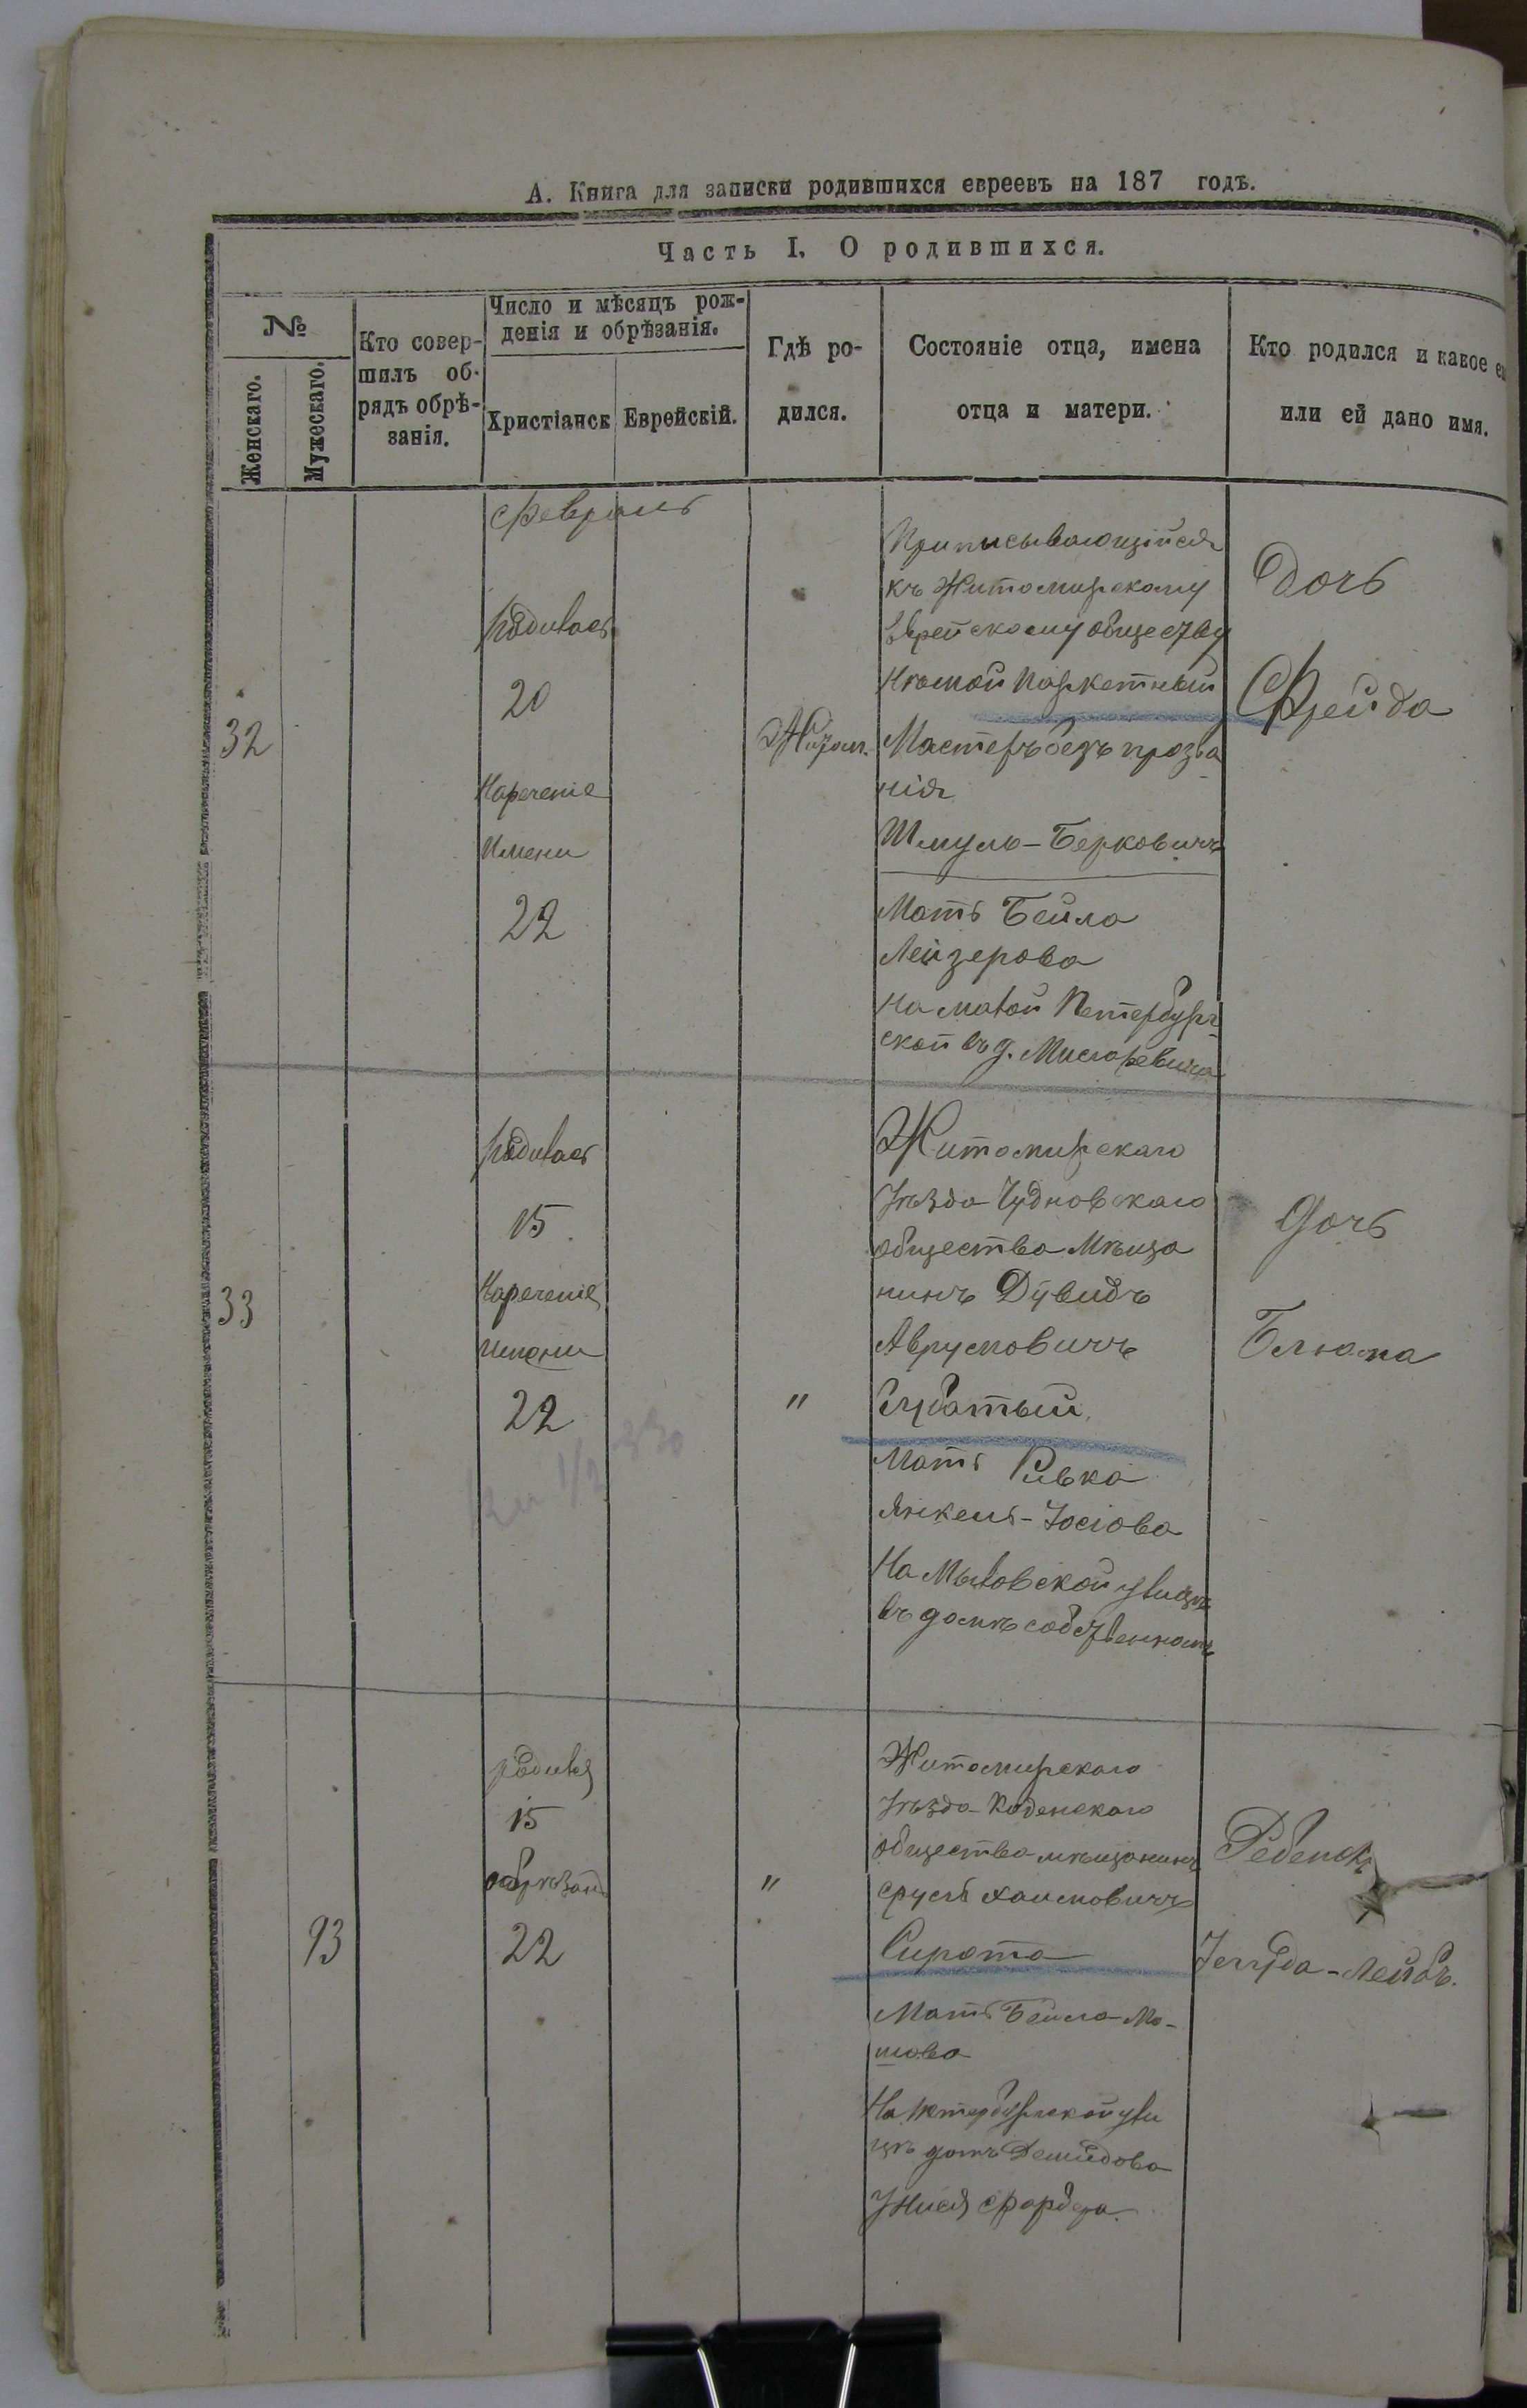 А. Книга для записки родившихся евреевъ на 187 годъ.
Часть I. О родившихся.
№
Женскаго.
Мужескаго.
Кто совер-
шилъ об-
рядъ обрѣ-
занія.
Число и мѣсяцъ рож-
денія и обрѣзанія.
Христіанск
Еврейскій.
Гдѣ ро-
дился.
Состояніе отца, имена
отца и матери.
Кто родился и какое
или ей дано имя.
Февраль
32
родилась
20
Нареченіе
имени
22
Житом.
Приписывающійся
къ Житомирскому
Еврейскому обществу
Нѣмой Паркетный
Мастеръ безъ прозва
нія
Шмуль-Берковичъ
Мать Бейла
Лейзерова
На малой Петербург-
ской въ д.
Дочь
Фрейда
33
родилась
15
Нареченіе
имени
22
"
Житомирскаго
уѣзда Чудновскаго
общества Мѣща
нинъ Дувидъ
Аврумовичъ
Субатый
Мать Ривка
Янкель-Іосіова
На Мыловской улицѣ
въ домѣ собственномъ
Дочь
Блюма
93
родился
15
обрѣзанъ
22
"
Житомирскаго
уѣзда Коденскаго
общества мѣщанинъ
Сруль Хаимовичъ
Сирота
Мать Бейла Мо-
шова
На Петербургской ули
цѣ домъ Демидова
Ребенокъ
Іегуда-Лейбъ.